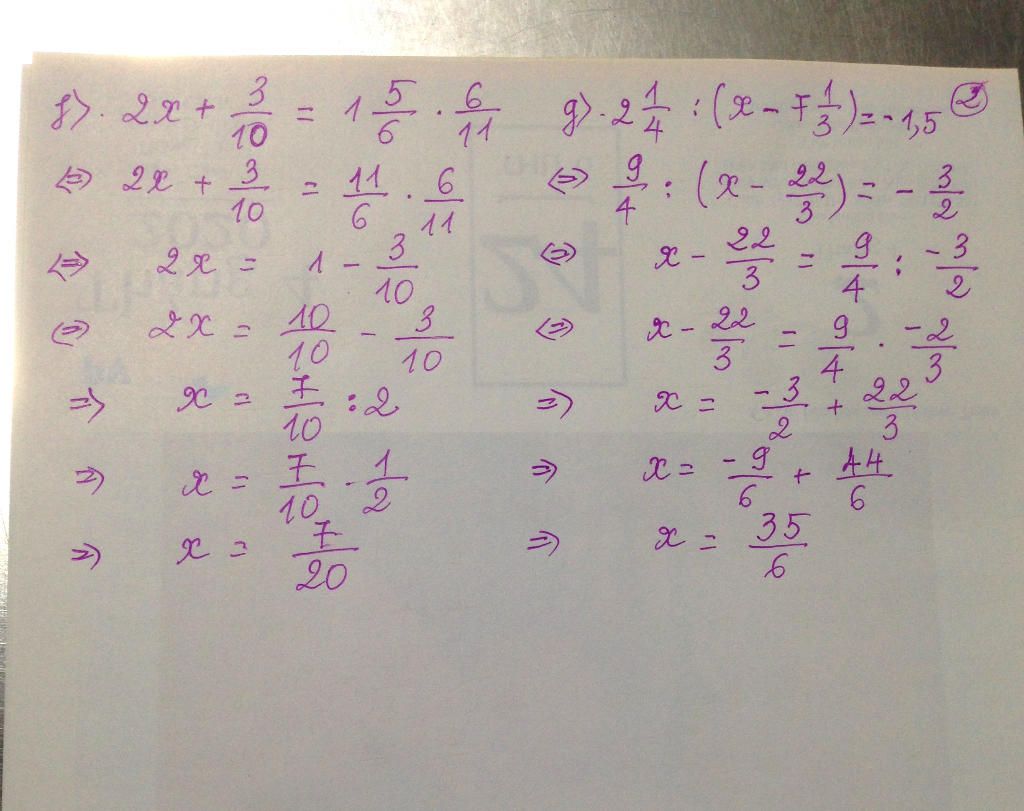 f). 2x + 3/10 = 1 5/6 · 6/11
⇔ 2x + 3/10 = 11/6 · 6/11
⇔ 2x = 1 - 3/10
⇔ 2x = 10/10 - 3/10
⇒ x = 7/10 : 2
⇒ x = 7/10 · 1/2
⇒ x = 7/20
g). 2 1/4 : (x - 7 1/3) = -1,5
⇔ 9/4 : (x - 22/3) = - 3/2
⇔ x - 22/3 = 9/4 : -3/2
⇔ x - 22/3 = 9/4 · -2/3
⇒ x = -3/2 + 22/3
⇒ x = -9/6 + 44/6
⇒ x = 35/6
2